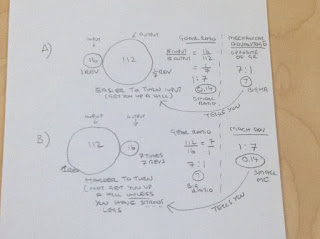 A)
INPUT
OUTPUT
16
112
1 REV
1/7 REV
EASIER TO TURN INPUT
(GET YOU UP A HILL)
GEAR RATIO
# INPUT
# OUTPUT
= 16
112
= 1
7
1:7
0.14
SMALL
RATIO
MECHANICAL
ADVANTAGE
OPPOSITE
OF GR
7:1
7
BIG MA
TELLS YOU
B)
INPUT
OUTPUT
112
16
1 REV
7 TIMES
7 REVS
HARDER TO TURN
(NOT GET YOU UP
A HILL UNLESS
YOU HAVE STRONG
LEGS
GEAR RATIO
112
16
= 7
1
7:1
7
BIG
RATIO
MECH ADV
1:7
0.14
SMALL
TELLS YOU